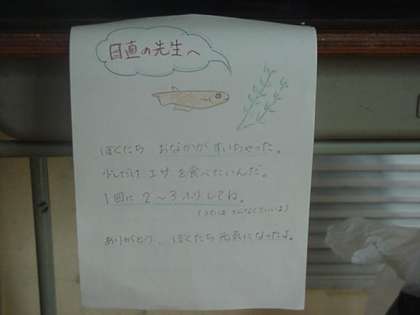 日直の先生へ
ぼくたち おなかが すいちゃった。
少しだけ エサ を食べたいんだ。
1回に 2～3ふりしてね。
ありがとう。ぼくたち 元気になったよ。